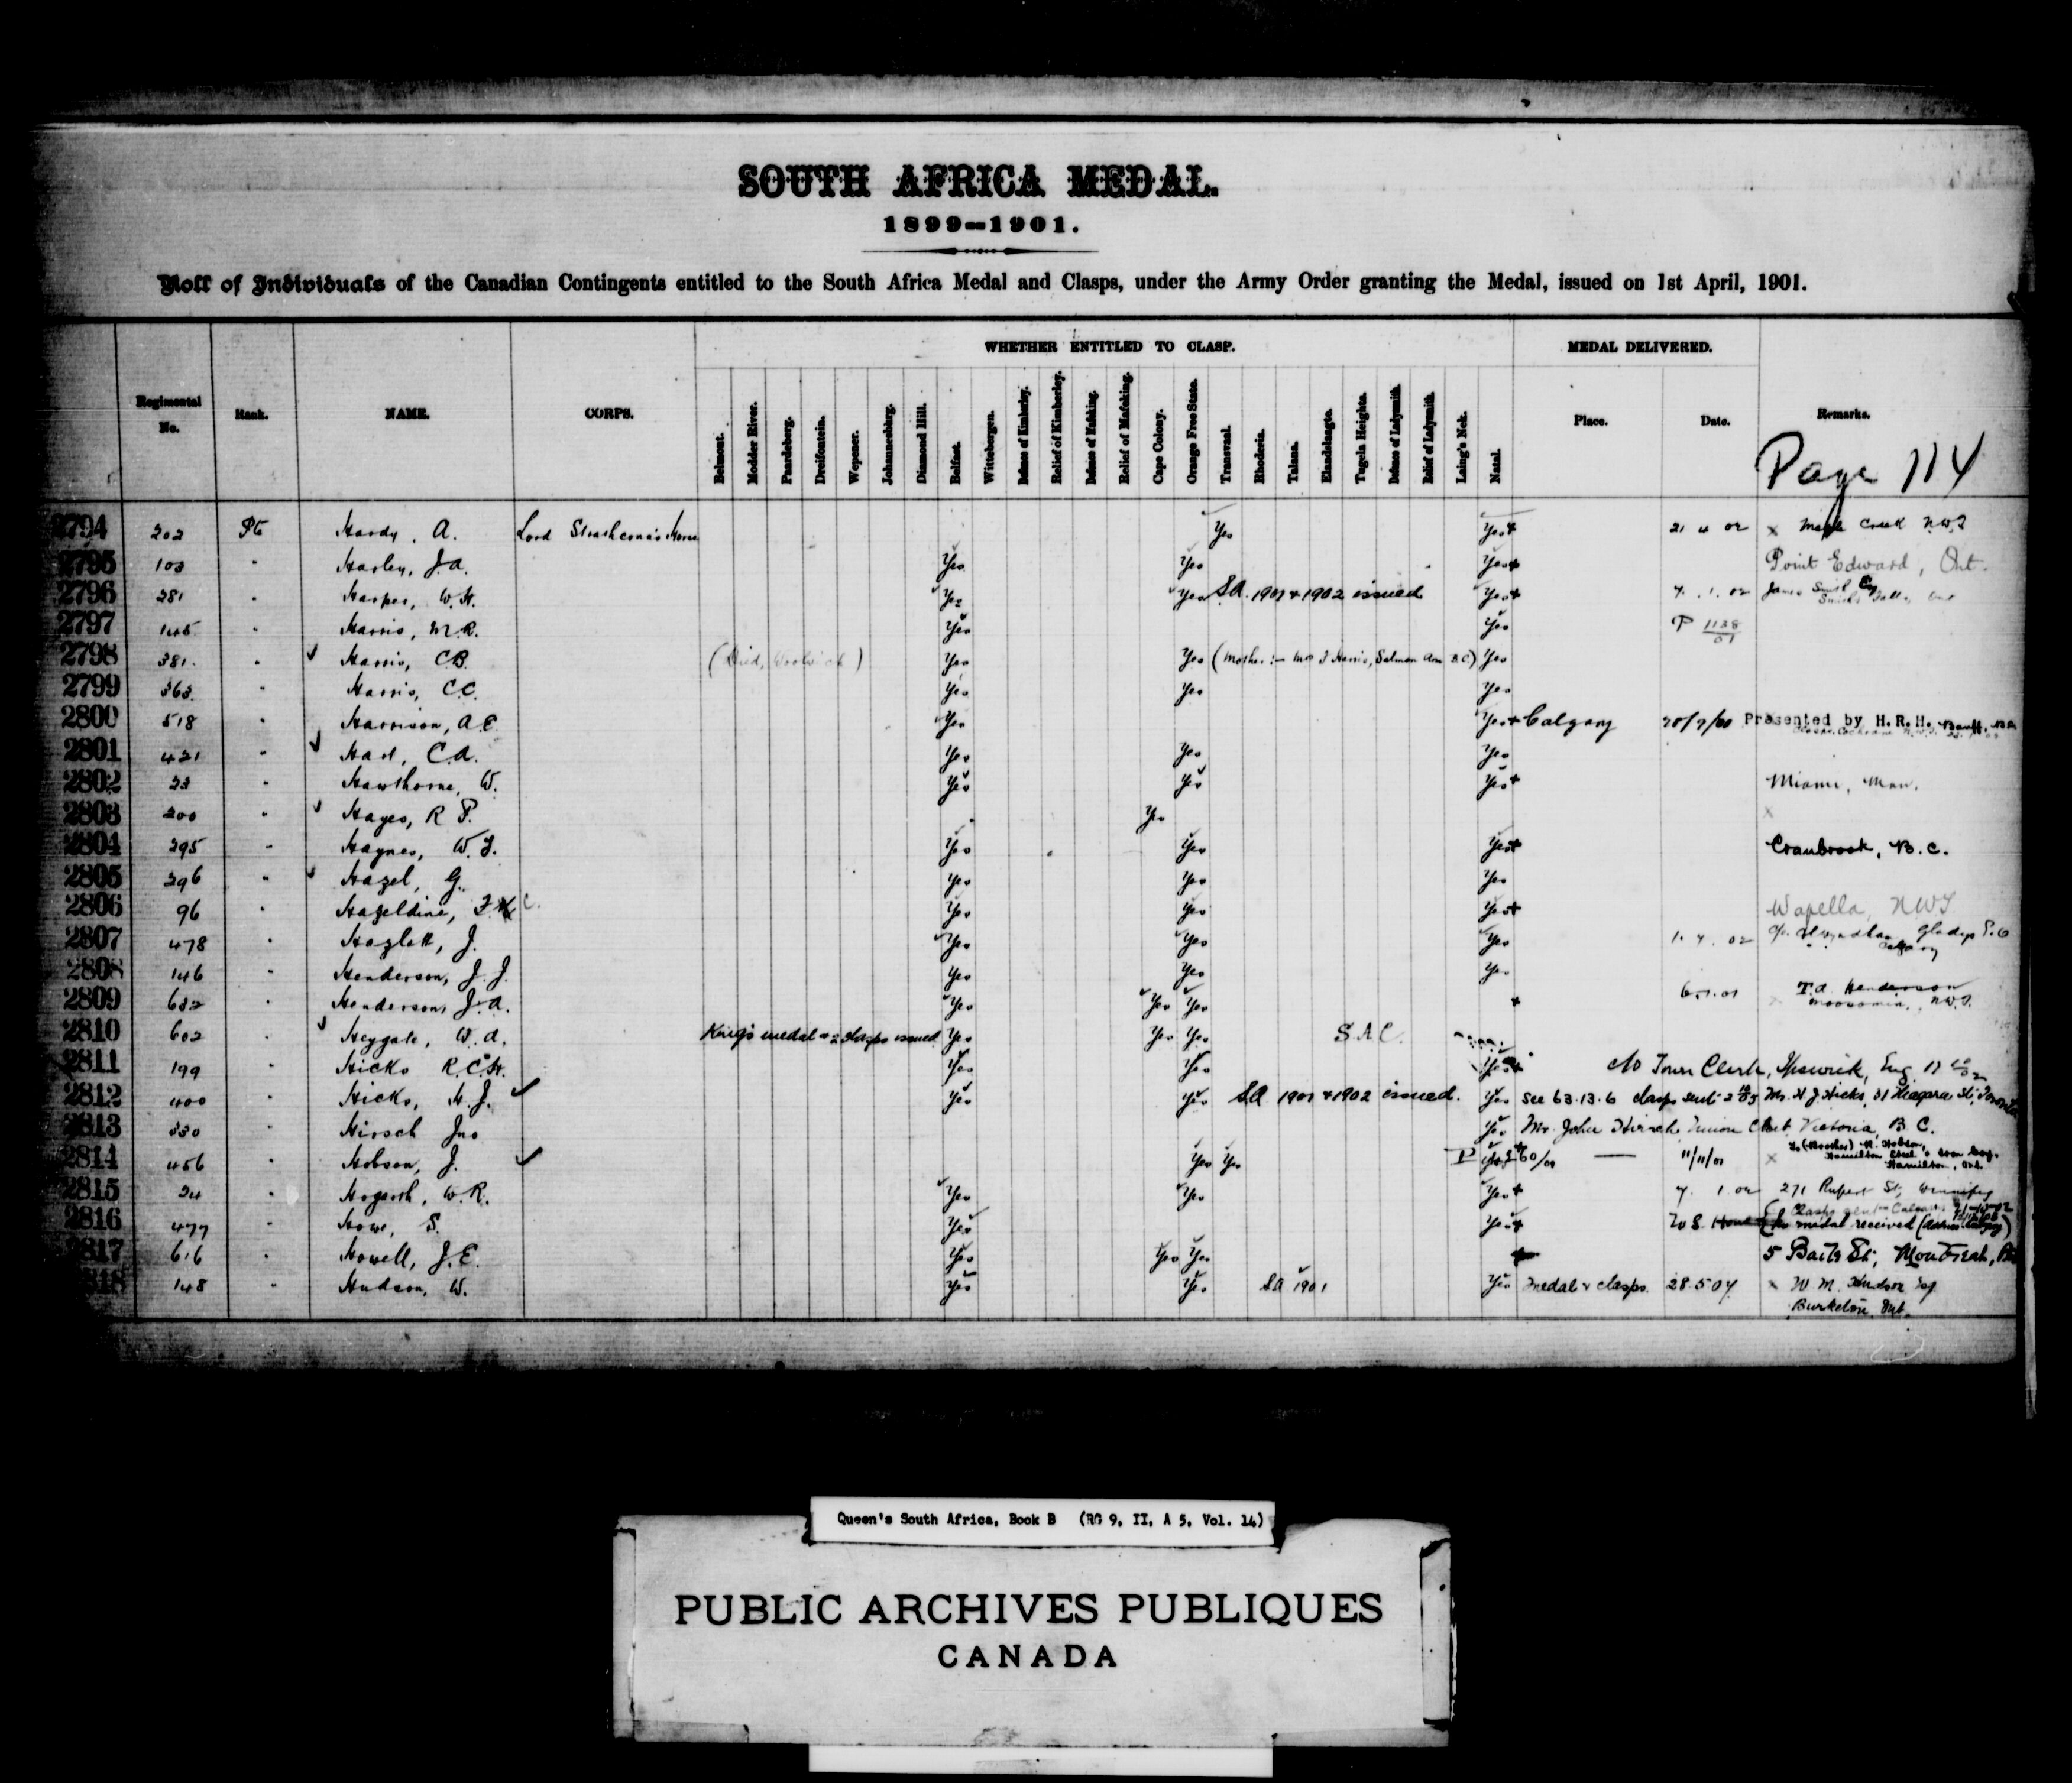 SOUTH AFRICA MEDAL.
1899--1901.
Roll of Individuals of the Canadian Contingents entitled to the South Africa Medal and Clasps, under the Army Order granting the Medal, issued on 1st April, 1901.
Regimental No. Rank. NAME. CORPS. WHETHER ENTITLED TO CLASP. MEDAL DELIVERED. Remarks.
Belmont. Modder River. Paardeberg. Dreifontein. Wepener. Johannesburg. Diamond Hill. Belfast. Wittebergen. Defense of Kimberley. Relief of Kimberley. Defense of Mafeking. Relief of Mafeking. Cape Colony. Orange Free State. Transvaal. Rhodesia. Talana. Elandslaagte. Tugela Heights. Defense of Ladysmith. Relief of Ladysmith. Laing's Nek. Natal. Place. Date.
Page 114
2794 202 Pte Hardy, A. Lord Strathcona's Horse Yes Yes+ 21 4 02 x Maple Creek N.W.T
2795 103 " Harley, J.A. Yes Yes Yes+ Point Edward, Ont.
2796 281 " Harper, W.H. Yes Yes S.A. 1901 + 1902 issued Yes+ 7. 1. 02 Smiths Falls, Ont
2797 145 " Harris, M.R. Yes Yes P 1138/01
2798 381 " Harris, C.B. (Died, Woolwich) Yes Yes (Mother :- Mrs J Harris, Salmon Arm B.C.) Yes
2799 363 " Harris, C.C. Yes Yes Yes
2800 518 " Harrison, A.E. Yes Yes+ Calgary Presented by H.R.H. Banff
2801 421 " Hart, C.A. Yes Yes Yes
2802 23 " Hawthorne, W. Yes Yes Yes+ Miami, Man.
2803 200 " Hayes, R P. Yes x
2804 295 " Haynes, W.J. Yes Yes Yes+ Cranbrook, B.C.
2805 296 " Hazel, G. Yes Yes Yes
2806 96 " Hazeldine, F. C. Yes Yes Yes+ Wapella, NWT
2807 478 " Hazlett, J. Yes Yes Yes 1. 4. 02 Gladys P.O Calgary
2808 146 " Henderson, J.J. Yes Yes Yes
2809 632 " Henderson, J.A. Yes Yes Yes + T.A. Henderson
Moosomin, N.W.T.
2810 602 " Heygate, W.A. King's medal + 2 clasps issued Yes Yes Yes S.A.C.
2811 199 " Hicks R.C.H. Yes Yes Yes+ c/o Town Clerk, Ipswich, Eng.
2812 400 " Hicks, H.J. Yes Yes SA 1901 + 1902 issued. Yes See 63.13.6 clasps sent Mr. H J Hicks, 31 Niagara St, Toronto
2813 330 " Hirsch Jno Yes Mr. John Hirsch Union Club Victoria, B.C.
2814 456 " Hobson, J. Yes Yes 11/11/01 x To (Brother) R. Hobson,
Hamilton Steel & Iron Coy.
Hamilton, Ont.
2815 24 " Hogarth, W.R. Yes Yes Yes+ 7. 1. 02 271 Rupert St, Winnipeg
2816 477 " Howe, S. Yes Yes+ medal received
2817 616 " Howell, J.E. Yes Yes Yes + 5 St, Montreal,
2818 148 " Hudson, W. Yes Yes SA 1901 Yes Medal + clasps. 28.5.07 x W M. Hudson Esq
Burketon, Ont.
Queen's South Africa, Book B (RG 9, II, A 5, Vol. 14)
PUBLIC ARCHIVES PUBLIQUES
CANADA